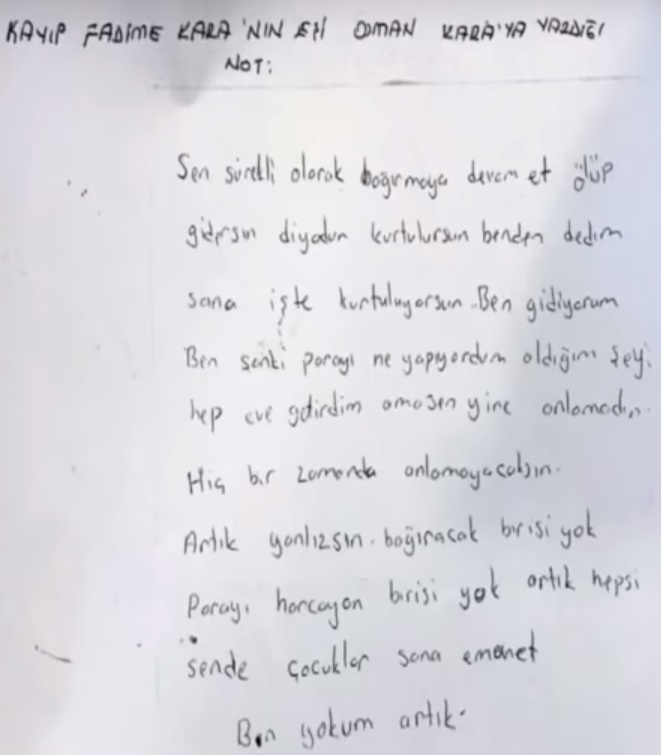 KAYIP FADİME KARA'NIN EŞİ OSMAN KARA'YA YAZDIĞI
NOT:
Sen sürekli olarak boğırmaya devam et ölüp
gidersin diyodun kurtulursun benden dedim
sana işte kurtuluyorsun. Ben gidiyorum
Ben sanki parayı ne yapıyordum aldığım şeyi
hep eve getirdim ama sen yine anlamadın.
Hiç bir zamanda anlamayacaksın.
Artık yanlızsın. bağıracak birisi yok
Parayı harcayan birisi yok artık hepsi
sende çocuklar sana emanet
Ben yokum artık.